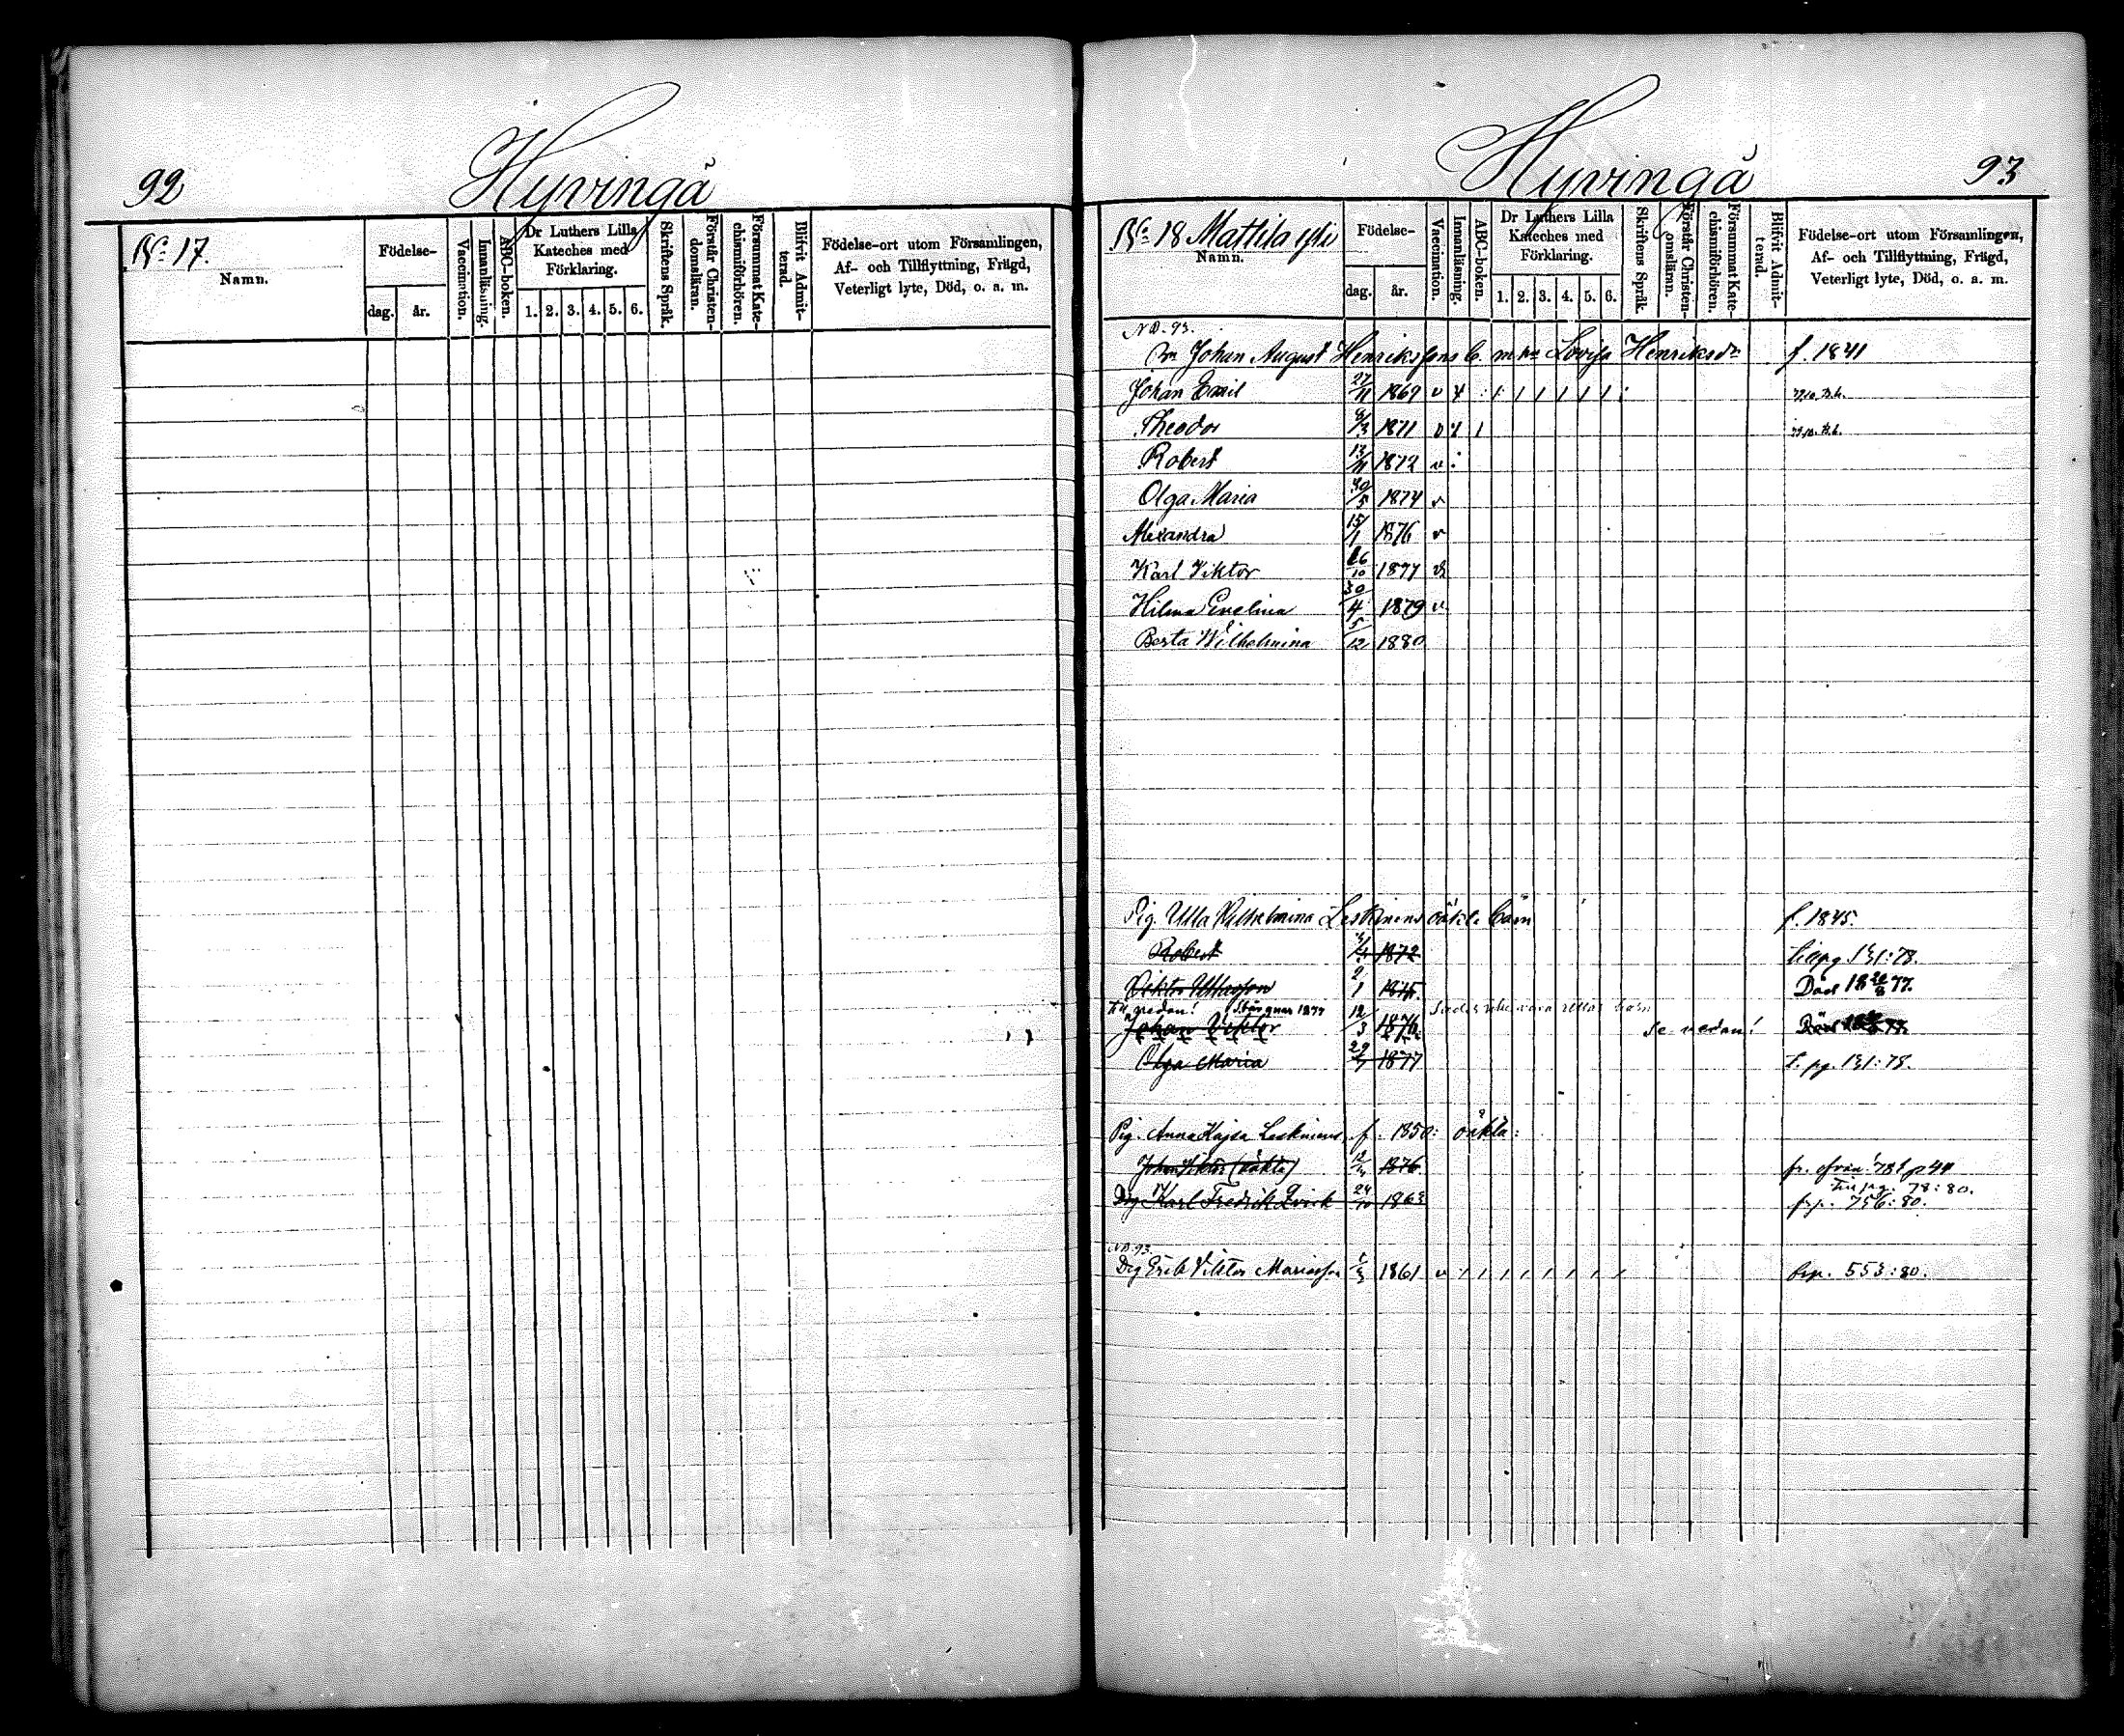 92
Hyvingå
No 17.
Namn.
Födelse-
dag.
år.
Vaccination.
Innanläsning.
ABC-boken.
Dr Luthers Lilla
Kateches med
Förklaring.
1. 2. 3. 4. 5. 6.
Skriftens Språk.
Förstår Christen-
domsläran.
Försummat Kate-
chismiförhören.
Blifvit Admit-
terad.
Födelse-ort utom Församlingen,
Af- och Tillflyttning, Frägd,
Veterligt lyte, Död, o. a. m.
Hyvingå
93
No 18 Mattila
Namn.
Födelse-
dag.
år.
Vaccination.
Innanläsning.
ABC-boken.
Dr Luthers Lilla
Kateches med
Förklaring.
1. 2. 3. 4. 5. 6.
Skriftens Språk.
Förstår Christen-
domsläran.
Försummat Kate-
chismiförhören.
Blifvit Admit-
terad.
Födelse-ort utom Församlingen,
Af- och Tillflyttning, Frägd,
Veterligt lyte, Död, o. a. m.
N B. 93.
Johan August Henrikssons b. m hu Lovisa Henriksdr f. 1841
Johan Emil 27/11 1869 v
Theodor 8/3 1871 v
Robert 13/11 1872 v
Olga Maria 30/5 1874 v
Alexandra 15/1 1876 v
Karl Viktor 26/10 1877 v
Hilma Evelina 30/4 1879 v
Berta Wilhelmina 5/12 1880
Pig. Ulla Vilhelmina Leskinens oäkta barn f. 1845.
Robert 1872 till pg 131:78.
Viktor Ullasson 2/1 1875. Död 18 26/8 77.
nedan! 1877
Johan Viktor 12/3 1876 Se nedan!
Olga Maria 1877 t. pg. 131:78.
Pig. Anna Kajsa Leskinens f. 1850: oäkta:
Johan Viktor (oäkta) 12/3 1876
Till pg. 78:80.
Drg Karl Fredrik Qvick 24/10 1863 frp. 756:80.
N B. 93.
Drg Erik Viktor Mariasson 1861 v frp. 553:80.